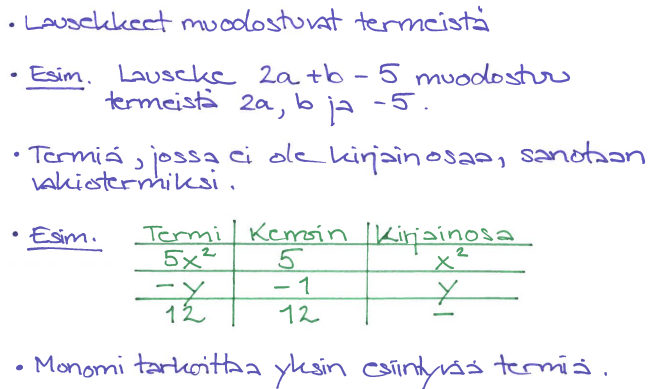 • Lausekkeet muodostuvat termeistä
• Esim. Lauseke 2a + b - 5 muodostuu
termeistä 2a, b ja -5.
• Termiä, jossa ei ole kirjainosaa, sanotaan
vakiotermiksi.
• Esim. Termi | Kerroin | Kirjainosa
5x² | 5 | x²
-y | -1 | y
12 | 12 | –
• Monomi tarkoittaa yksin esiintyvää termiä.